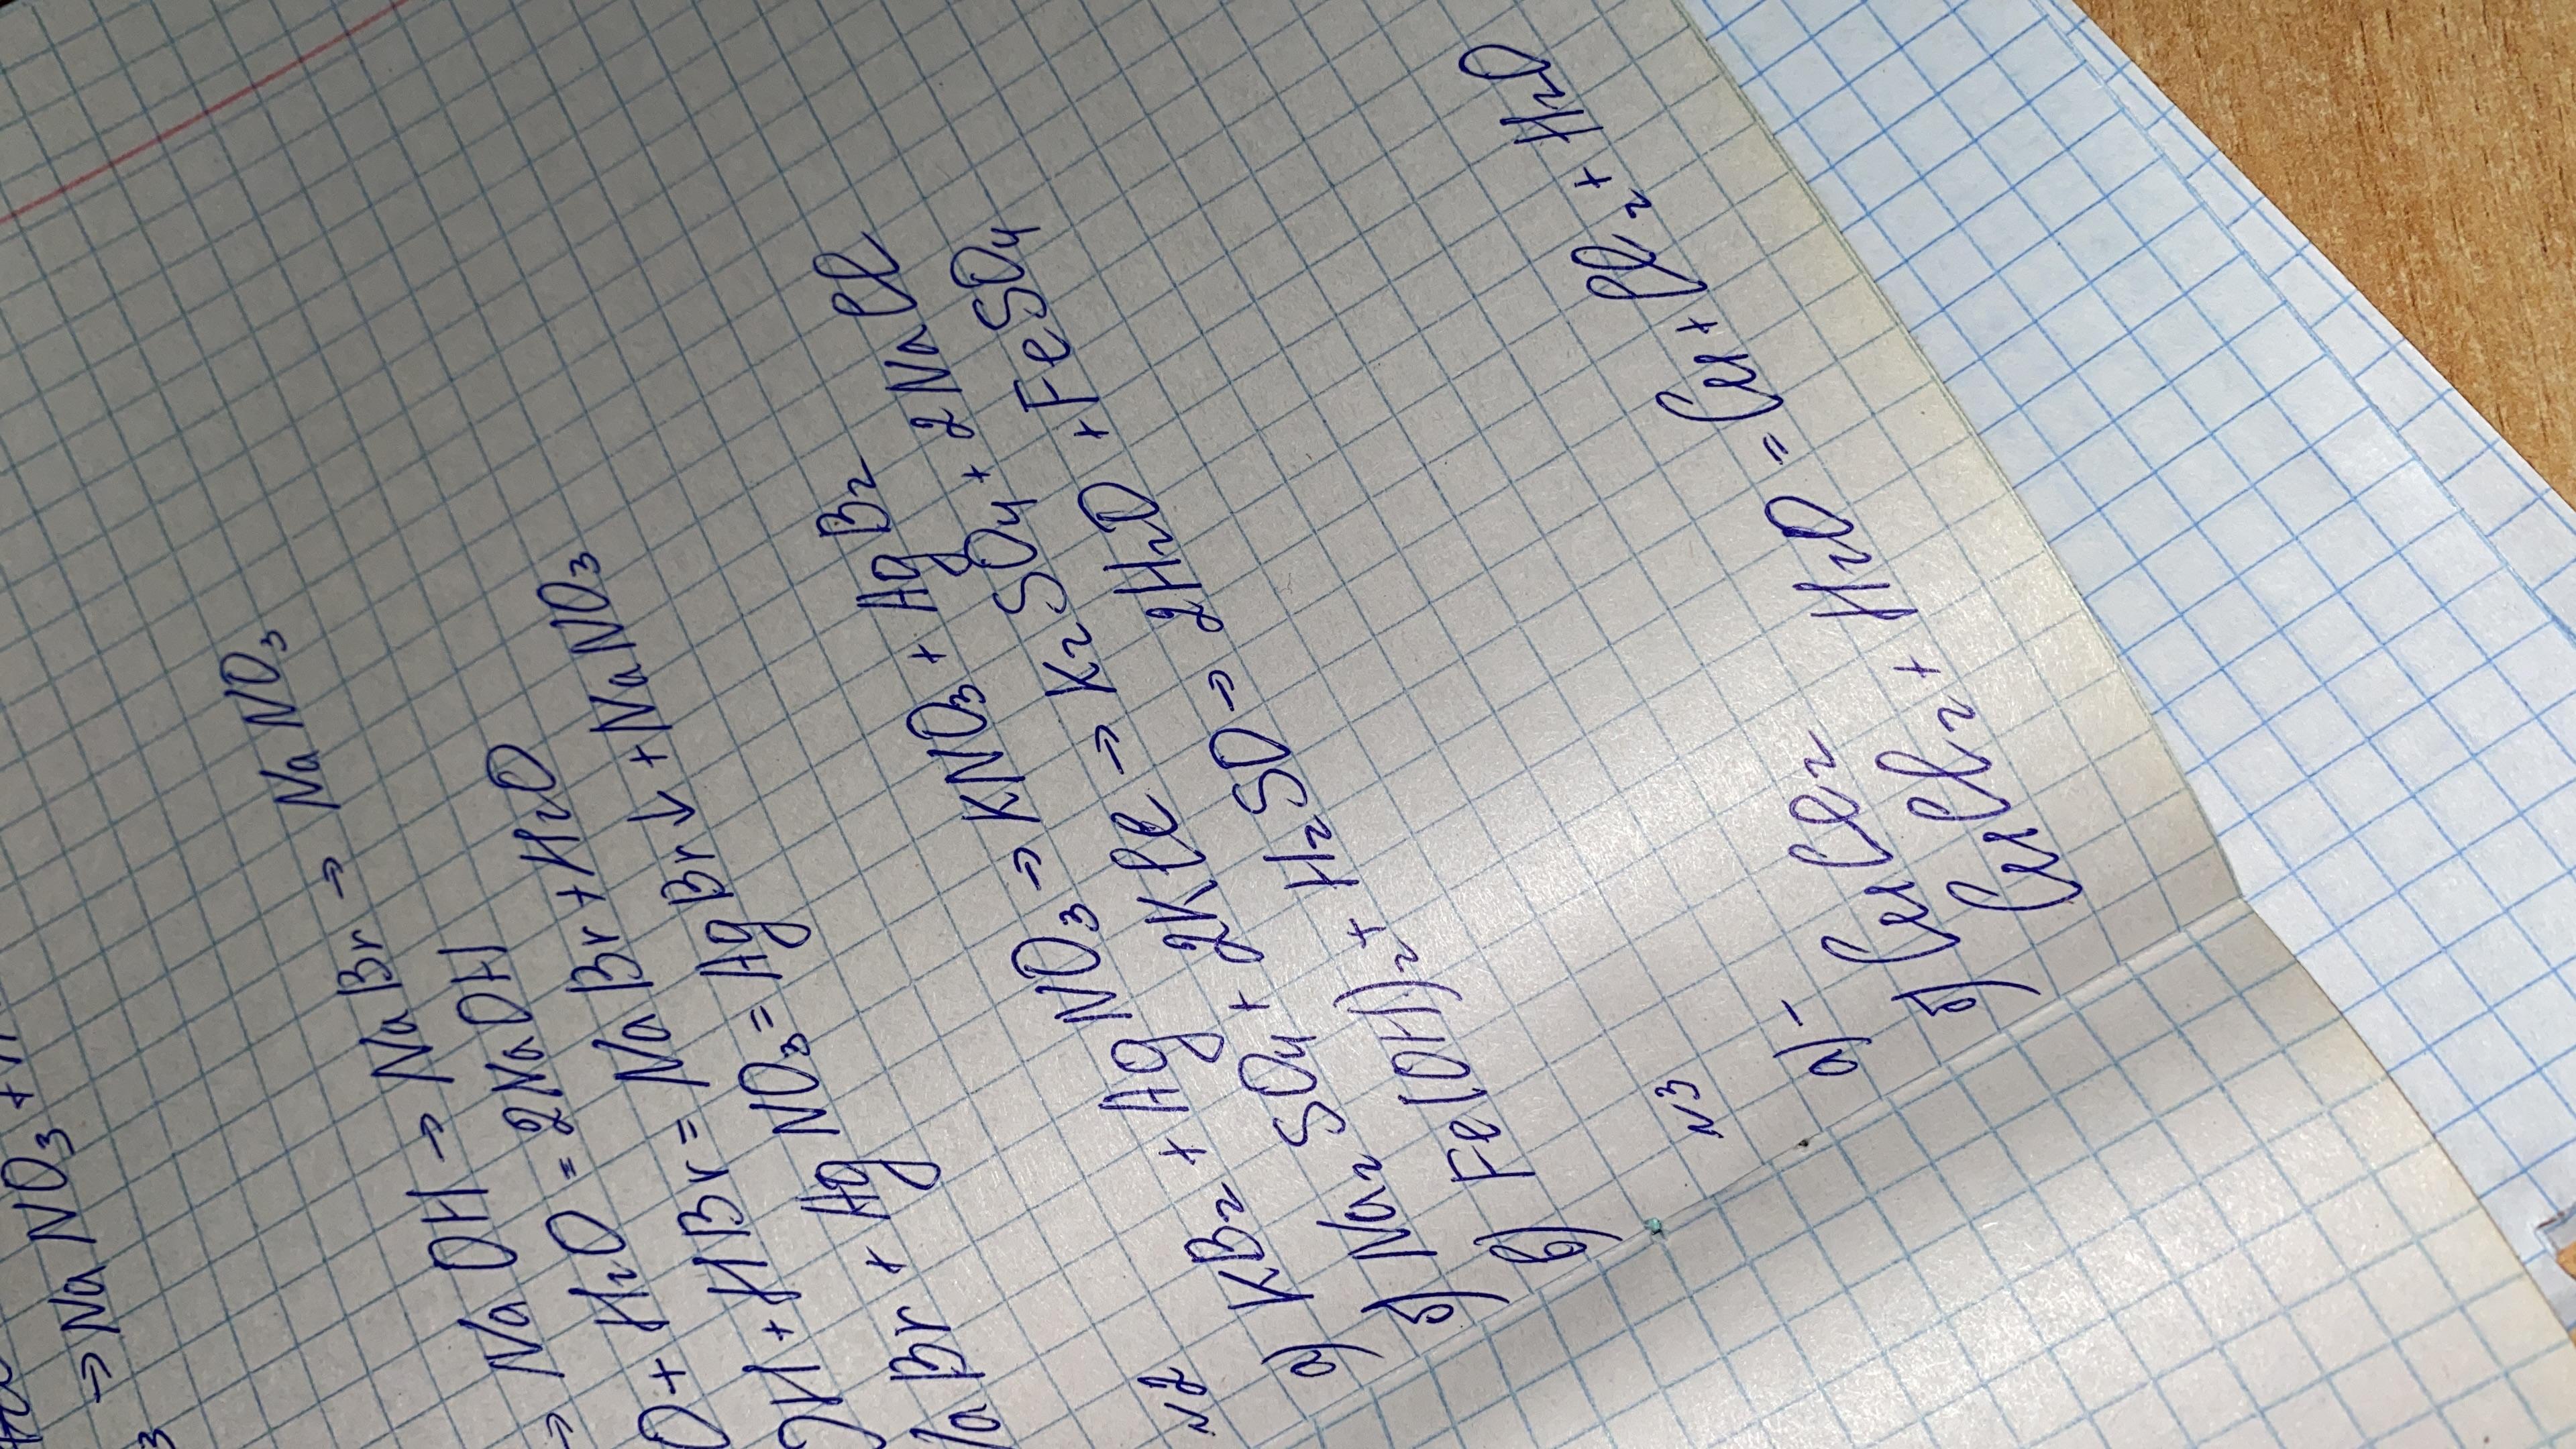 → NaNO3 +
→ NaOH → NaBr → NaNO3
O + H2O = 2NaOH
OH + HBr = NaBr + H2O
NaBr + AgNO3 = AgBr↓ + NaNO3
N2
а) KBr + AgNO3 → KNO3 + AgBr
б) Na2SO4 + 2KCl → K2SO4 + 2NaCl
в) Fe(OH)2 + H2SO → 2H2O + FeSO4
N3
а) - CuCl2
б) CuCl2 + H2O = Cu + Cl2 + H2O